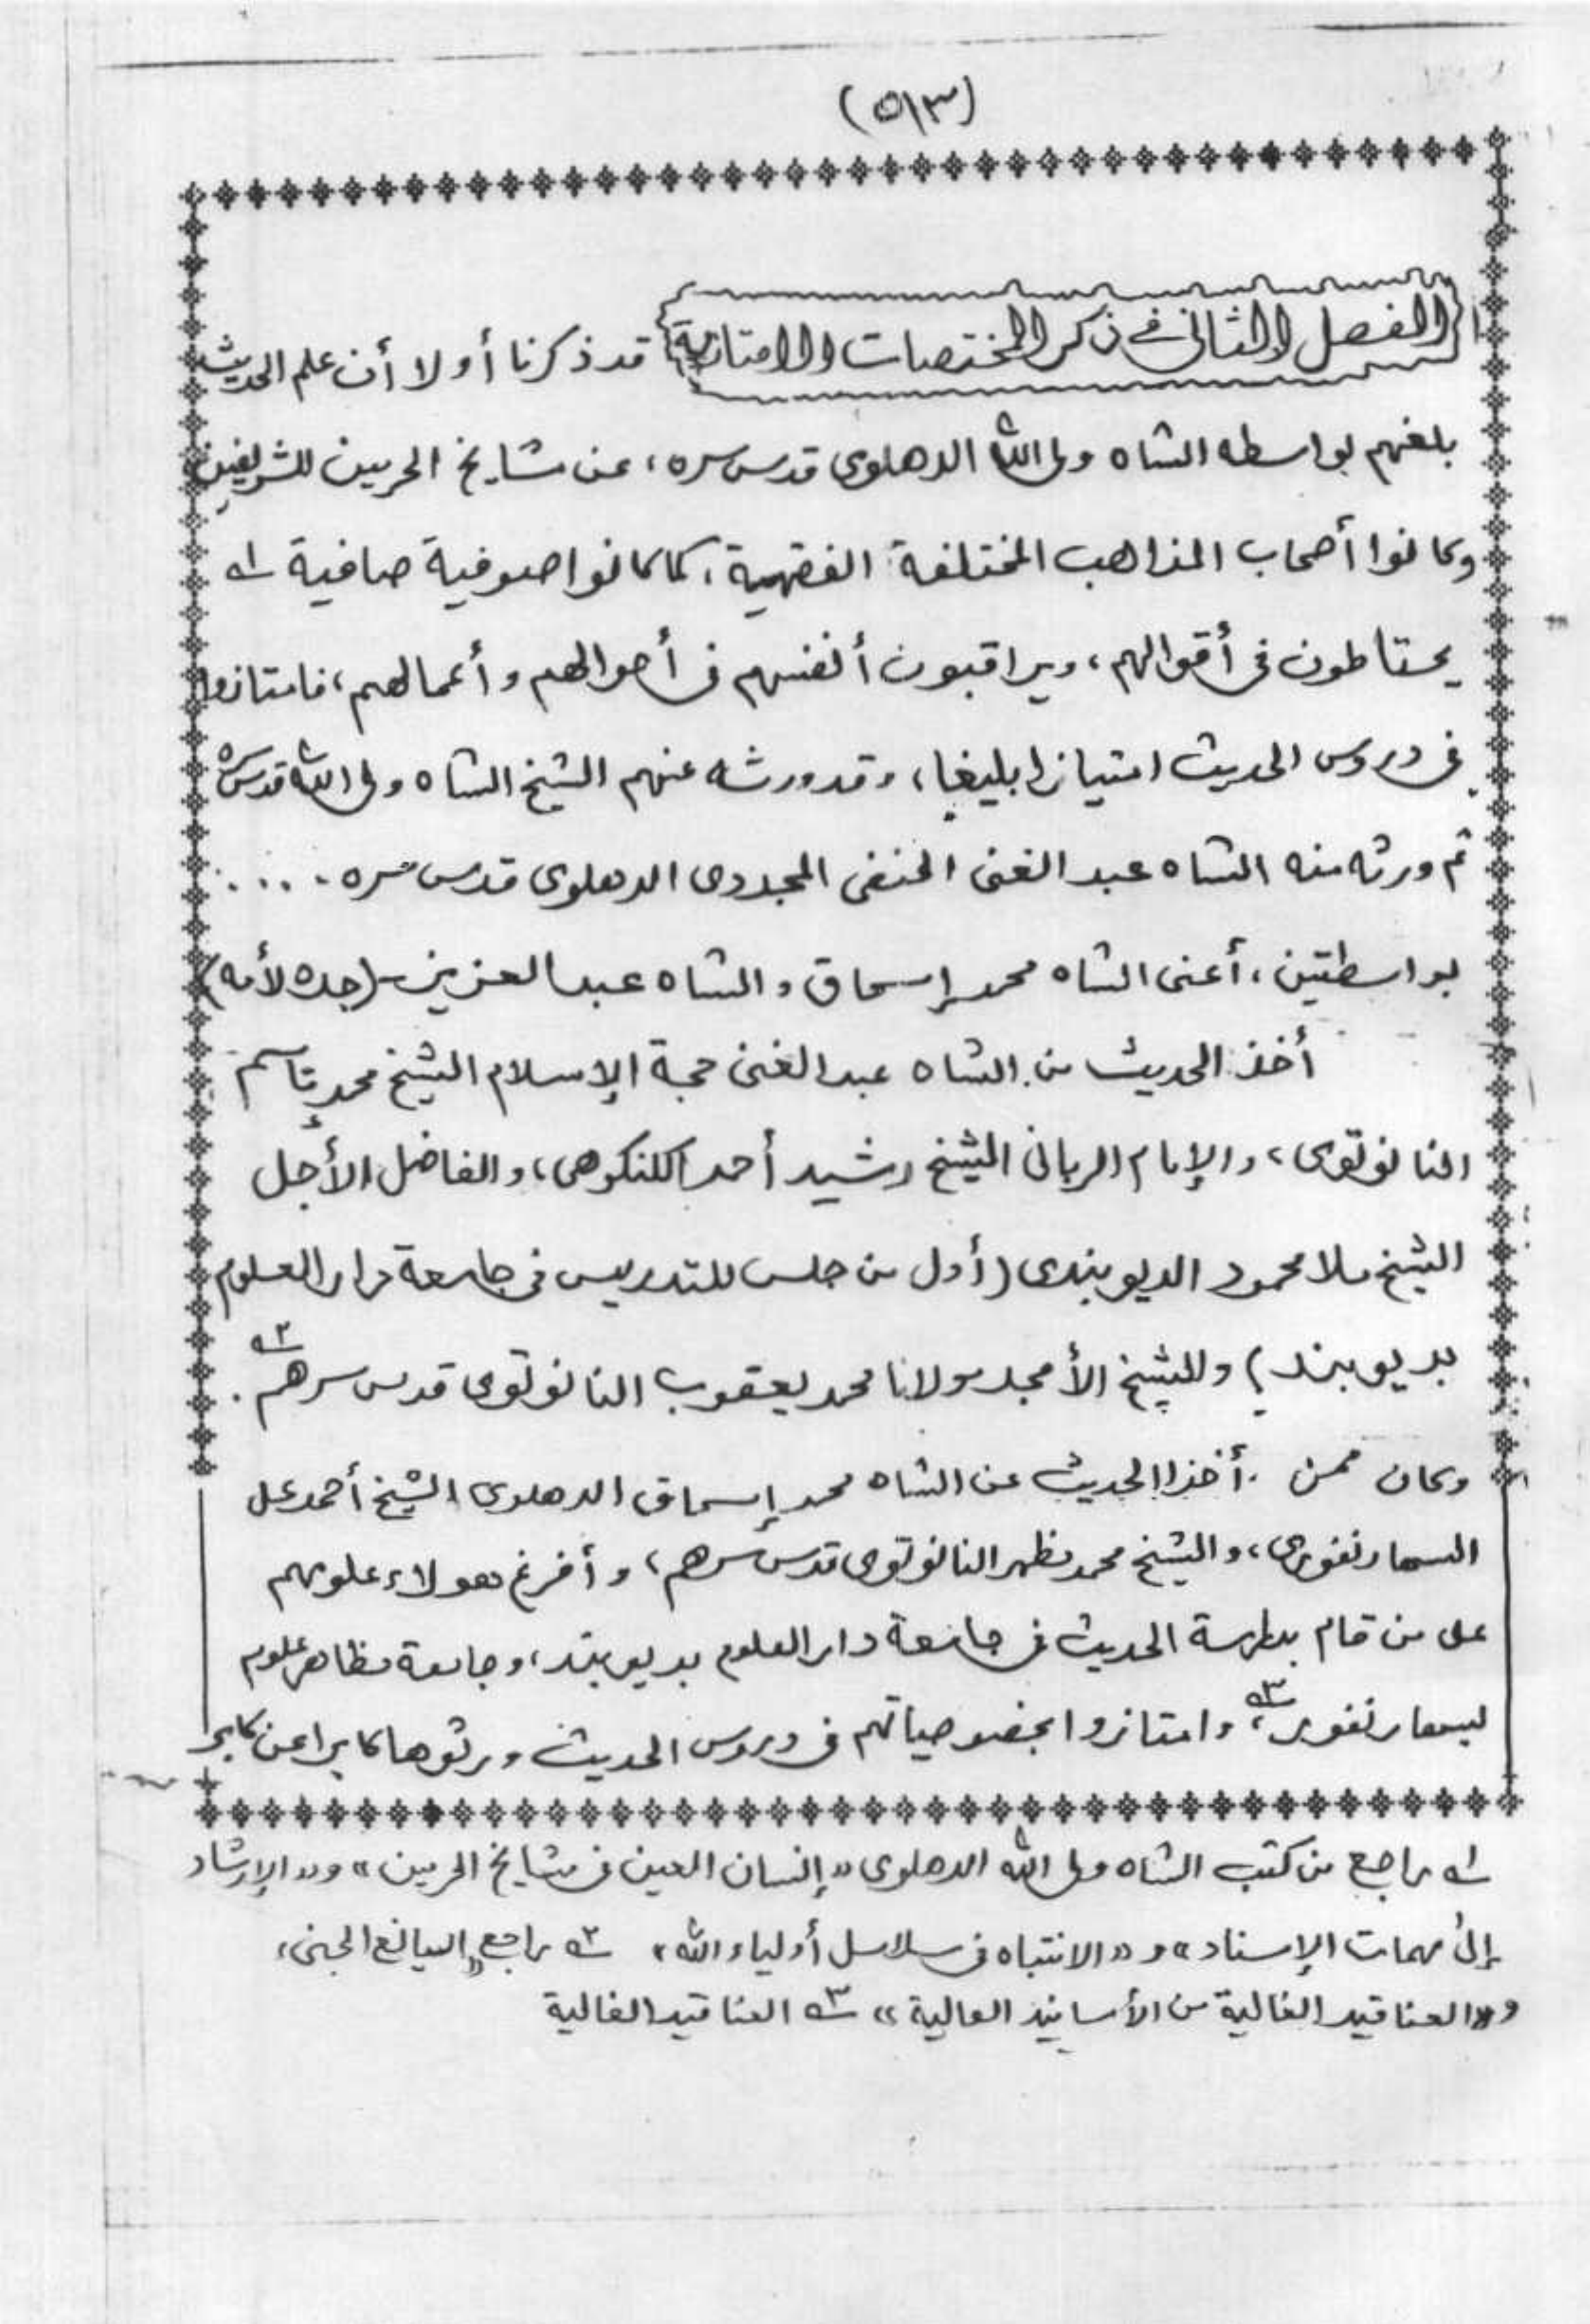 (٥١٣)
الفصل الثاني في ذكر المختصات الامتيازية قد ذكرنا أولا أن علم الحديث
بلغهم بواسطه الشاه ولى الله الدهلوى قدس سره، عن مشايخ الحرمين الشريفين
وكانوا أصحاب المذاهب المختلفة الفقهية، كما كانوا صوفية صافية ١ـه
يحتاطون فى أقوالهم، ويراقبون أنفسهم فى أحوالهم وأعمالهم، فامتازوا
فى دروس الحديث امتيازا بليغا، وقد ورثه عنهم الشيخ الشاه ولى الله قدس سره
ثم ورثه منه الشاه عبد الغنى الحنفى المجددى الدهلوى قدس سره ....
بواسطتين، أعنى الشاه محمد إسحاق والشاه عبد العزيز (جده لأمه)
أخذ الحديث من الشاه عبد الغنى حجة الإسلام الشيخ محمد قاسم
النانوتوى، والإمام الربانى الشيخ رشيد أحمد الكنكوهى، والفاضل الأجل
الشيخ ملا محمود الديوبندى (أول من جلس للتدريس فى جامعة دار العلوم
بديوبند) والشيخ الأمجد مولانا محمد يعقوب النانوتوى قدس سرهم ٢ـه.
وكان ممن أخذ الحديث عن الشاه محمد إسحاق الدهلوى الشيخ أحمد على
السهارنفورى، والشيخ محمد مظهر النانوتوى قدس سرهم، وأفرغ هولاء علومهم
على من قام بدارسة الحديث فى جامعة دار العلوم بديوبند، وجامعة مظاهر علوم
بسهارنفور ٣ـه، وامتازوا بخصوصياتهم فى دروس الحديث ورثوها كابرا عن كابر
١ـه راجع من كتب الشاه ولى الله الدهلوى «إنسان العين فى مشايخ الحرمين» و«الإرشاد
إلى مهمات الإسناد» و«الانتباه فى سلاسل أولياء الله» ٢ـه راجع «اليانع الجنى»
و«العناقيد الغالية من الأسانيد العالية» ٣ـه العناقيد الغالية